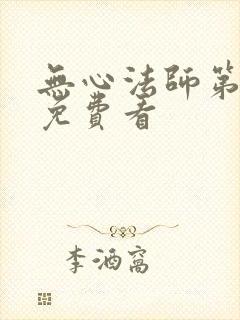 無心法師第
免費看
李酒窩